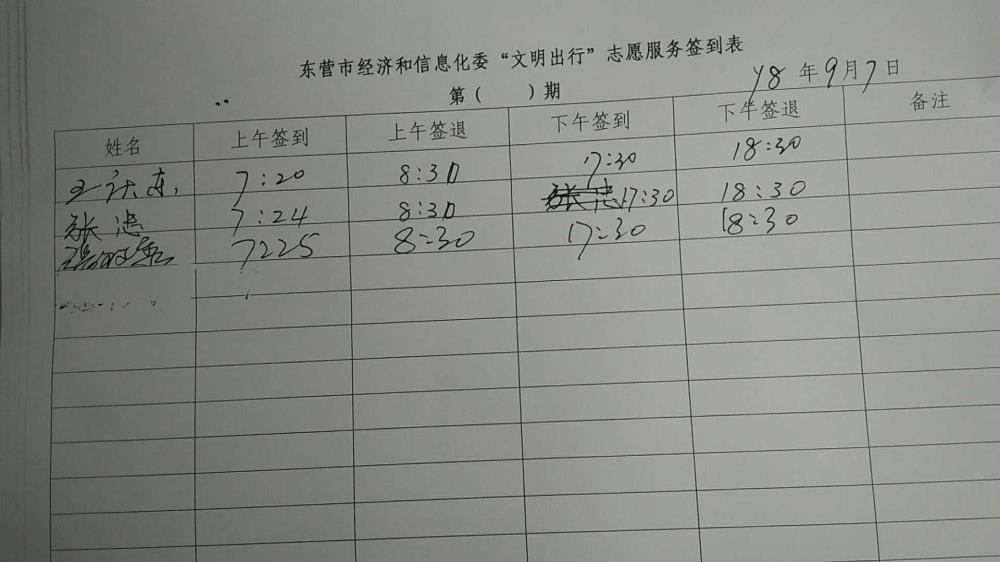 东营市经济和信息化委“文明出行”志愿服务签到表
第（ ）期 18年9月7日
姓名 上午签到 上午签退 下午签到 下午签退 备注
7:20 8:30 17:30 18:30
张忠 7:24 8:30 张忠 17:30 18:30
7:25 8:30 17:30 18:30